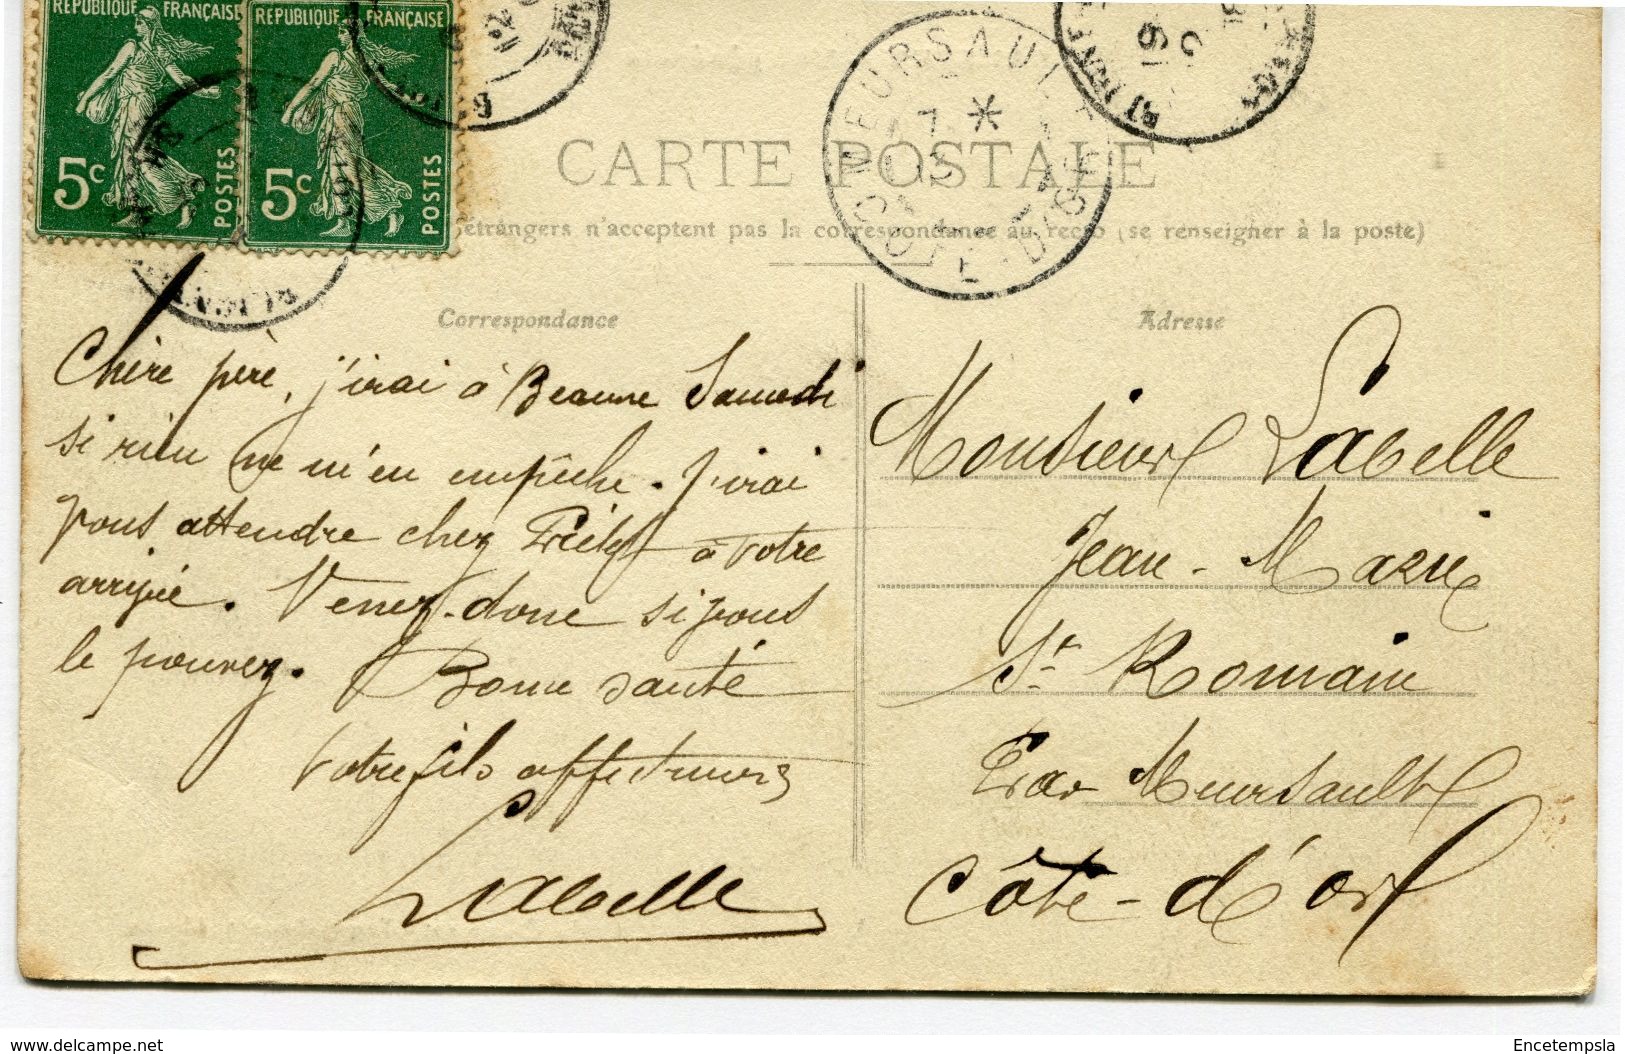 REPUBLIQUE FRANÇAISE
REPUBLIQUE FRANÇAISE
5c POSTES
5c POSTES
MEURSAULT
7 *
COTE-D'OR
CARTE POSTALE
étrangers n'acceptent pas la correspondance au recto (se renseigner à la poste)
Correspondance
Adresse
Chère père, j'irai à Beaune Samedi
si rien ne m'en empêche. J'irai
vous attendre chez à votre
arrivée. Venez-donc si vous
le pouvez. Bonne santé
Votre fils affectueux
Labelle
Monsieur Labelle
Jean-Mazué
St Romain
Par Meursault
Côte-d'or
delcampe.net
Encetempsla